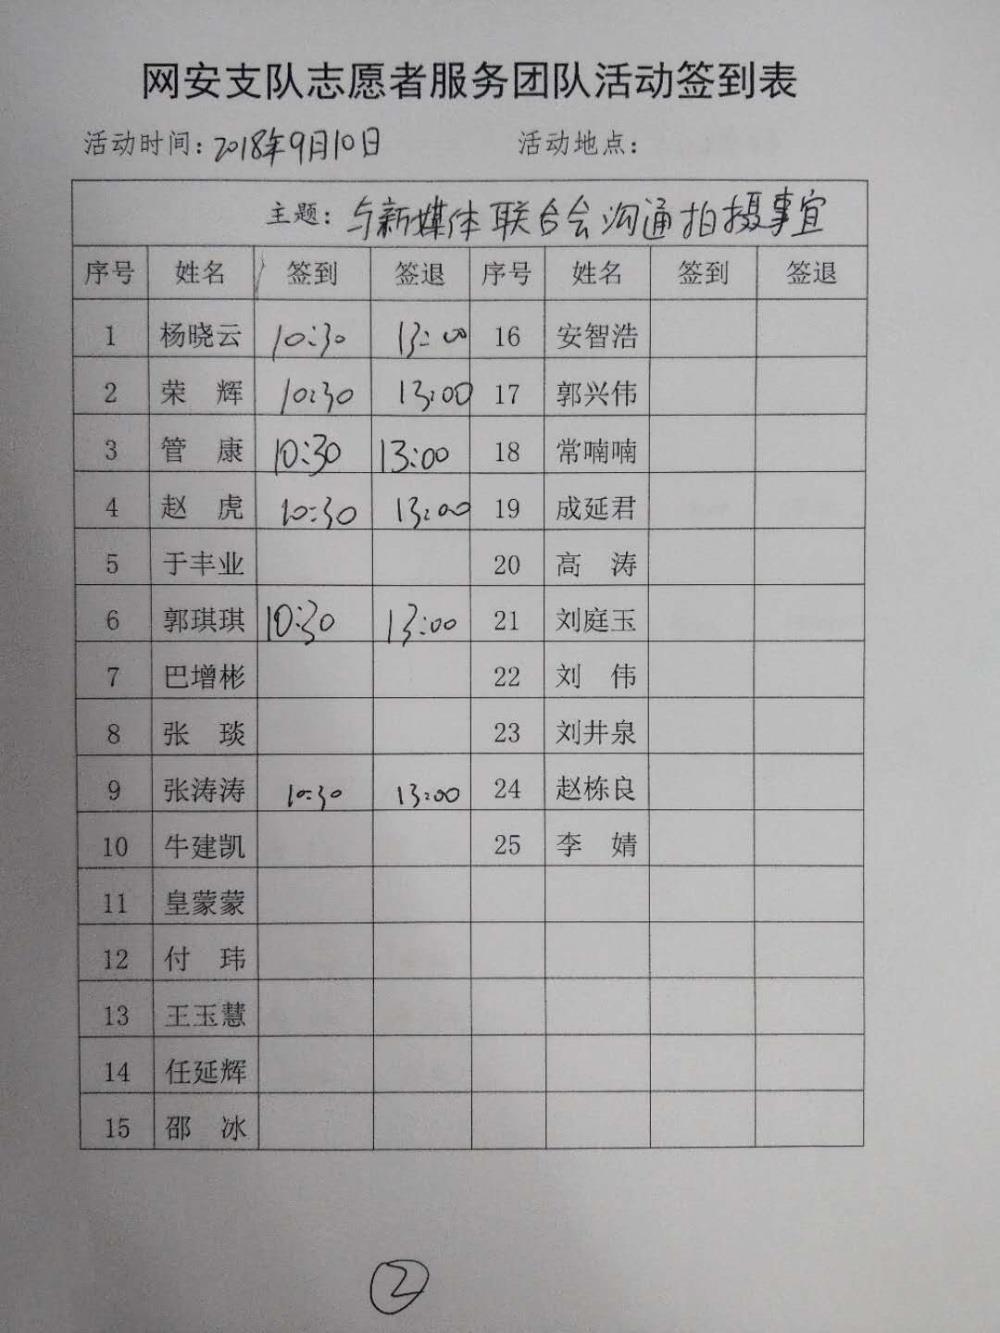 网安支队志愿者服务团队活动签到表
活动时间：2018年9月10日 活动地点：
主题：与新媒体联合会沟通拍摄事宜
序号 姓名 签到 签退 序号 姓名 签到 签退
1 杨晓云 10:30 13:00 16 安智浩
2 荣 辉 10:30 13:00 17 郭兴伟
3 管 康 10:30 13:00 18 常喃喃
4 赵 虎 10:30 13:00 19 成延君
5 于丰业 20 高 涛
6 郭琪琪 10:30 13:00 21 刘庭玉
7 巴增彬 22 刘 伟
8 张 琰 23 刘井泉
9 张涛涛 10:30 13:00 24 赵栋良
10 牛建凯 25 李 婧
11 皇蒙蒙
12 付 玮
13 王玉慧
14 任延辉
15 邵 冰
②